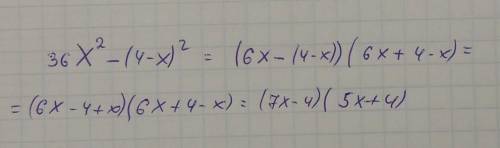 36x² - (4-x)² = (6x - (4-x))(6x + 4 - x) =
= (6x - 4 + x)(6x + 4 - x) = (7x - 4)(5x + 4)